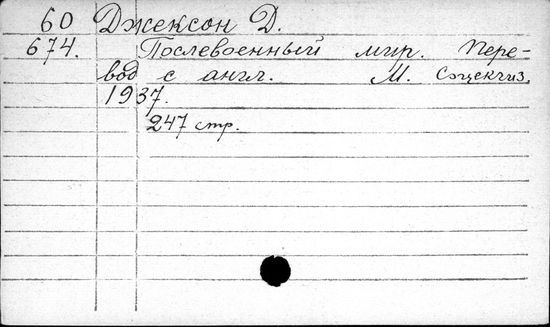 60 Джексон Д.
674. Послевоенный мир. Пере-
вод с англ. М. Соцекгиз,
1937.
247 стр.